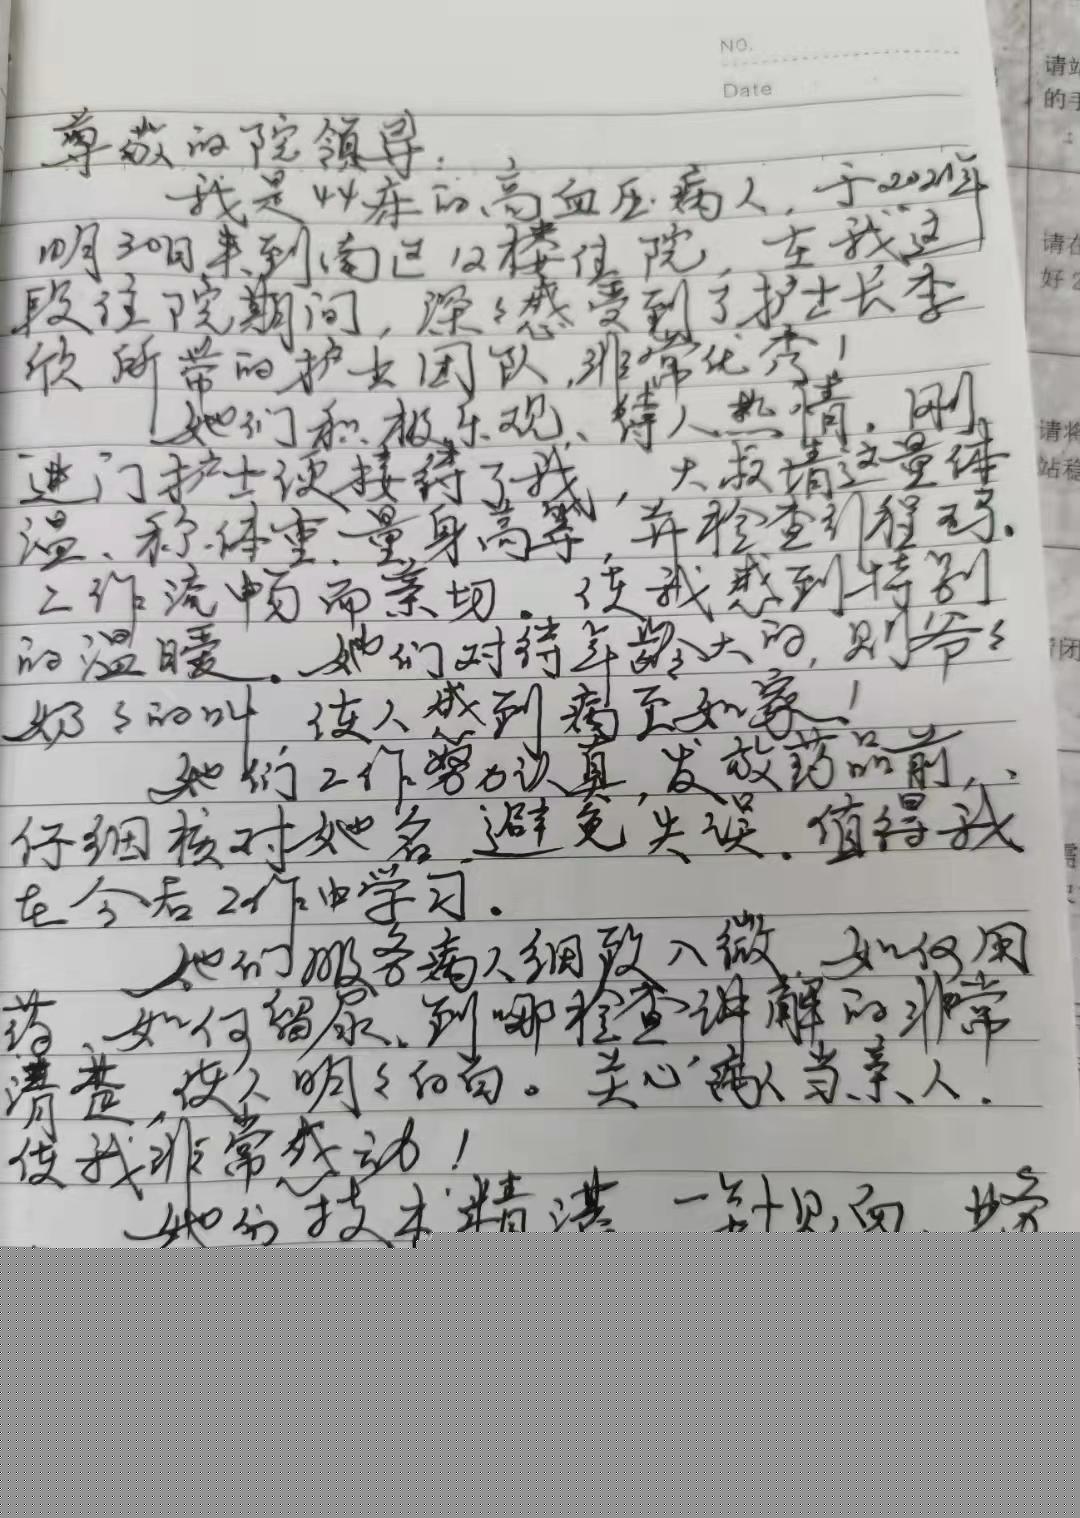 NO.
Date
尊敬的院领导:
我是44床的高血压病人,于2021年
10月30日来到南区12楼住院,在我这
段住院期间,深々感受到了护士长李
欣所带的护士团队,非常优秀!
她们积极乐观、待人热情。刚
进门护士便接待了我,大叔请这量体
温、称体重、量身高等,并检查行程码。
工作流畅而亲切。使我感到特别
的温暖。她们对待年龄大的,则爷々
奶々的叫,使人感到病至如家!
她们工作努力认真,发放药品前,
仔细核对姓名,避免失误。值得我
在今后工作中学习。
她们服务病人细致入微,如何用
药、如何留尿、到哪检查讲解的非常
清楚,使人明々白白。关心病人当亲人。
使我非常感动!
她们技术精湛,一针见血,
请站
的手
请在
好2
请将
站稳